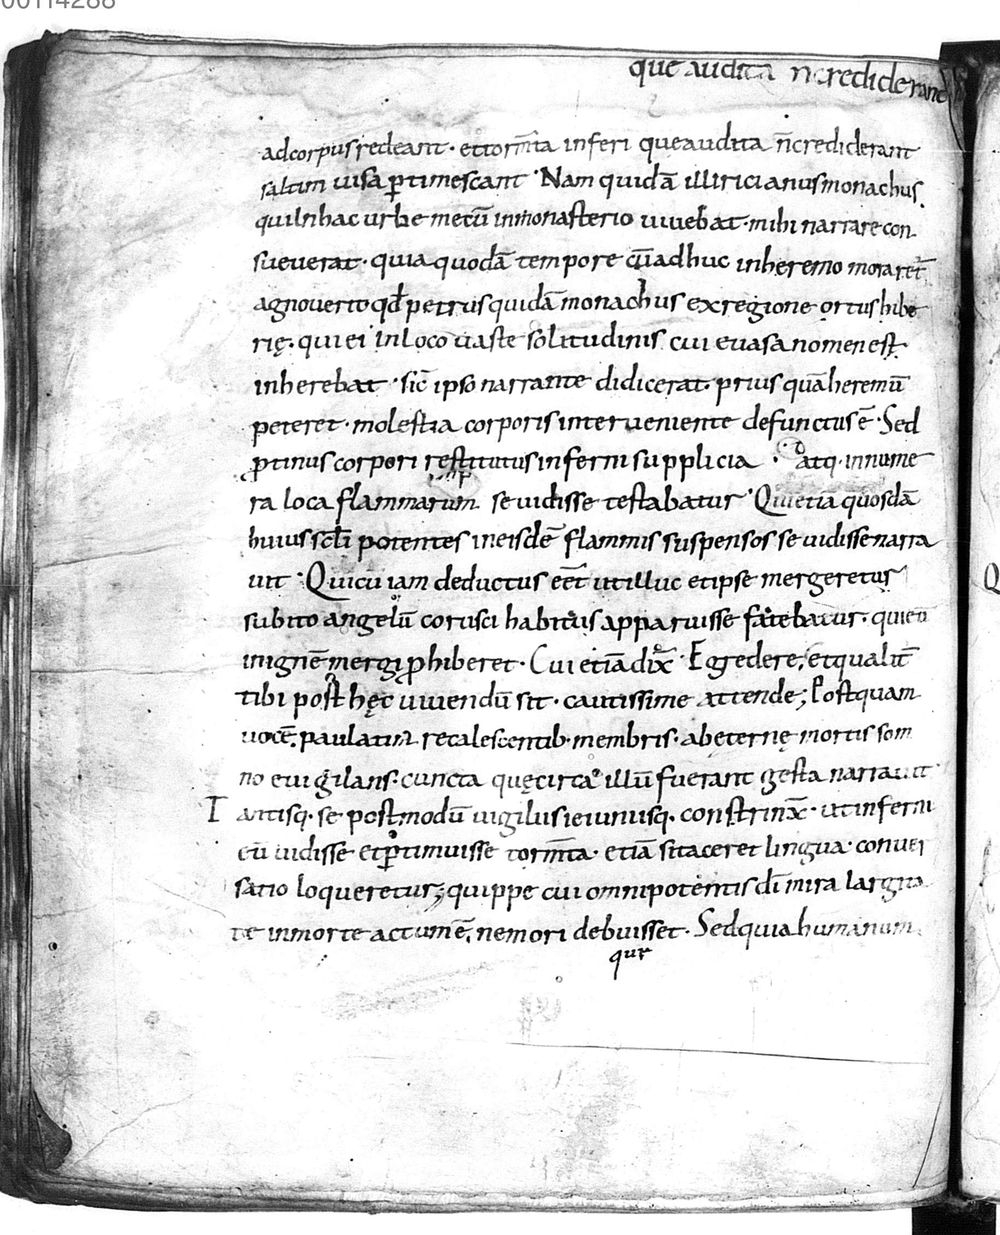 00114288
que audita n̄ crediderant
ad corpus redeant · et torm̄ta inferi que audita n̄ crediderant
saltim uisa ꝑtimescant · Nam quidā illiricianus monachus
qui In hac urbe mecū in monasterio uiuebat · mihi narrare con
sueuerat · quia quodā tempore cū adhuc in heremo moraret̄
agnouerit qđ petrus quidā monachus ex regione ortus hibe
rię · qui ei in loco uaste solitudinis cui euasa nomen est
inherebat · sic̄ ipso narrante didicerat · prius quā heremū
peteret · molestia corporis interueniente defunctus ē · Sed
ꝓtinus corpori restitutus inferni supplicia · atq · innume
ra loca flammarum se uidisse testabatur · Qui etiā quosdā
huius scłi potentes in eisdē flammis suspensos se uidisse narra
uit · Qui cū iam deductus eēt ut illuc et ipse mergeretur
subito angelū corusci habitus apparuisse fatebatur · qui eū
in ignē mergi ꝓhiberet · Cui etiā dix̄ · Egredere, et qualit̄
tibi post hęc uiuendū sit · cautissime attende; Post quam
uocē · paulatim recalescentib · membris · ab eternę mortis som
no euigilans · cuncta quę circa illū fuerant gesta narrauit
Tantisq · se postmodū uigiliis ieiuniisq · constrinx̄ · ut inferni
eū uidisse et ꝑtimuisse torm̄ta · etiā si taceret lingua · conuer
satio loqueretur; quippe cui omnipotentis dī mira largita
te in morte actum ē, ne mori debuisset · Sed quia humanum
que
Q